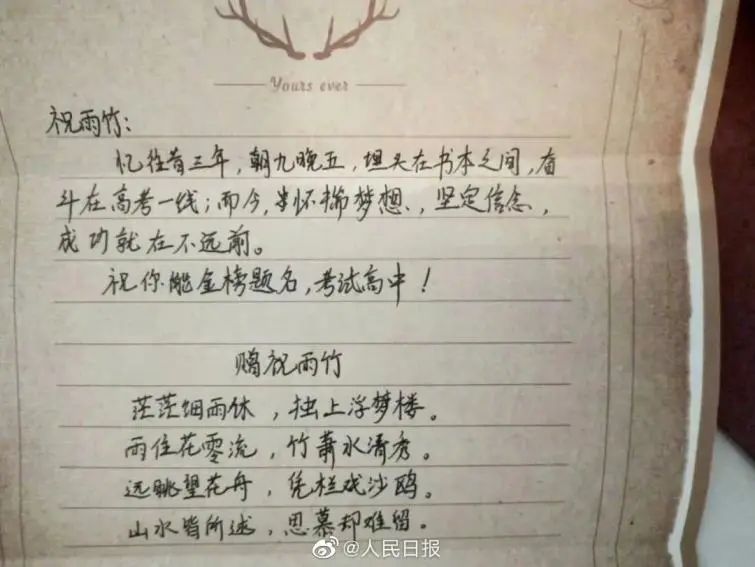 Yours ever
祝雨竹:
忆往昔三年,朝九晚五,埋头在书本之间,奋
斗在高考一线;而今,怀揣梦想,坚定信念,
成功就在不远前。
祝你能金榜题名,考试高中!
赠祝雨竹
茫茫烟雨休,独上浮梦楼。
雨住花零流,竹萧水清秀。
远眺望花舟,凭栏戏沙鸥。
山水皆所述,思慕却难留。
@人民日报